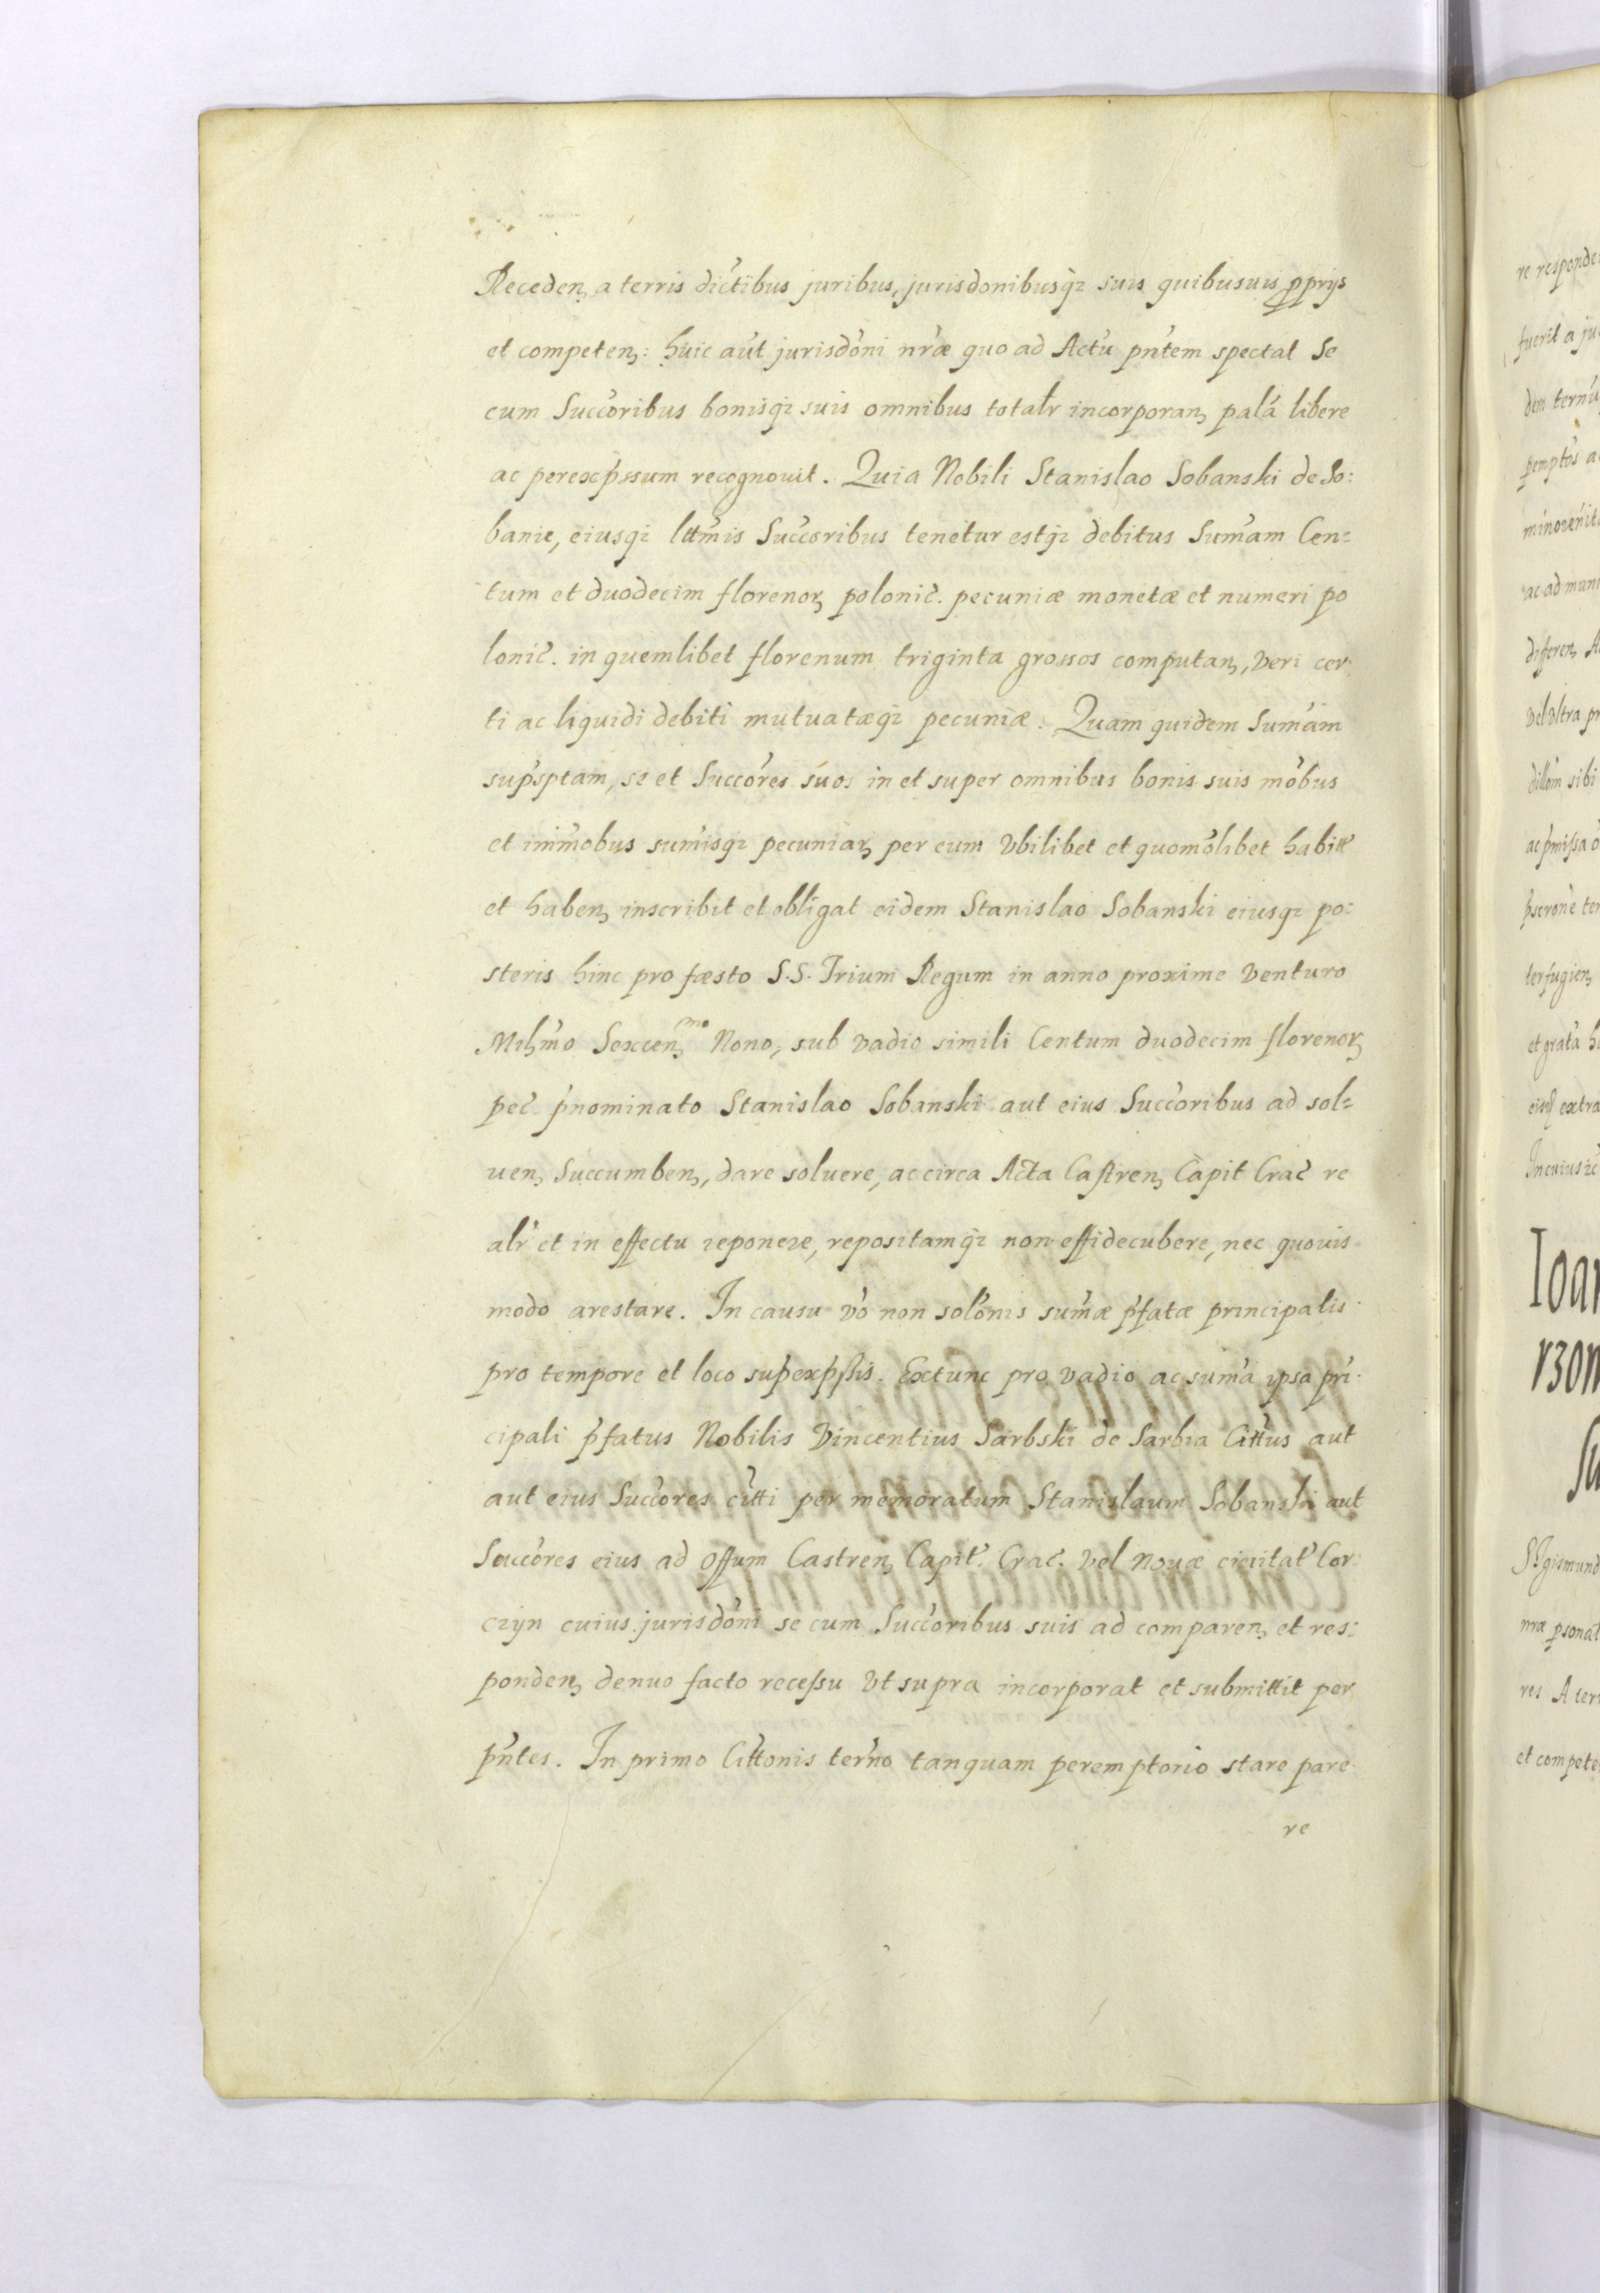 Receden, a terris dictibus juribus, jurisdonibusq3 suis quibusuis pprijs
et competen: huic aut jurisdoni nrae quo ad Actu pntem spectat Se
cum Succoribus bonisq3 suis omnibus totalr incorporan, pala libere
ac perexpssum recognouit. Quia Nobili Stanislao Sobanski de So:
banie, eiusq3 lttmis Succoribus tenetur estq3 debitus Sumam Cen=
tum et duodecim florenor, polonic. pecuniæ monetæ et numeri po
lonic. in quemlibet florenum triginta grossos computan, veri cer
ti ac liquidi debiti mutuatæq3 pecuniæ. Quam quidem Sumam
supsptam, se et Succores suos in et super omnibus bonis suis mobus
et immobus sumisq3 pecuniar, per eum Vbilibet et quomolibet habitt
et haben, inscribit et obligat eidem Stanislao Sobanski eiusq3 po:
steris hinc pro fæsto S.S. Trium Regum in anno proxime venturo
Milmo Sexcen,mo Nono, sub vadio simili Centum duodecim florenor,
pec. pnominato Stanislao Sobanski aut eius Succoribus ad sol=
uen, Succumben, dare soluere, ac circa Acta Castren, Capit Crac re
alr et in effectu reponere, repositamq3 non effidecubere, nec quouis
modo arestare. In causu vo non solonis sumæ pfatæ principalis
pro tempore et loco supexpssis. Extunc pro vadio ac suma ipsa pri
cipali pfatus Nobilis Vincentius Sarbski de Sarbia Cittus aut
aut eius Succores citti per memoratum Stanislaum Sobanski aut
Succores eius ad Offum Castren, Capit. Crac. vel Nouæ ciuitat Cor:
czyn cuius jurisdoni se cum Succoribus suis ad comparen, et res:
ponden, denuo facto recessu Vt supra incorporat et submittit per
pntes. In primo Cittonis terno tanquam peremptorio stare pare
re
re responde
fuerit a ju
den ternu
pemptos a
ac ad mun
differen, A
vel Vltra pr
sibi
ac pmissa
terfugien,
et grata h
extra
In cuius
Ioan
rzon
Su
Sigismund
nra psonal
res A terr
et compete